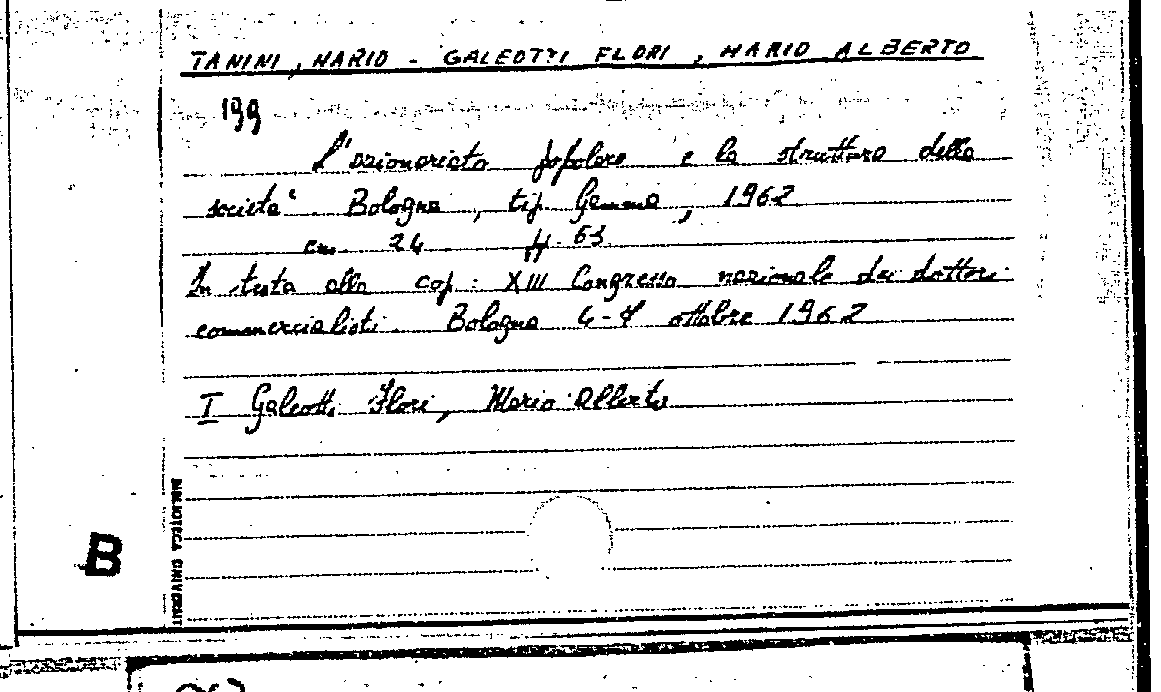 TANINI, MARIO - GALEOTTI FLORI, MARIO ALBERTO
199
L'azionariato popolare e la struttura delle
società. Bologna, tip. Gamma, 1962
cm. 24 pp. 63
In testa alla cop.: XIII Congresso nazionale dei dottori
commercialisti. Bologna 4-7 ottobre 1962
I Galeotti Flori, Mario Alberto
B
BIBLIOTECA UNIVERSIT